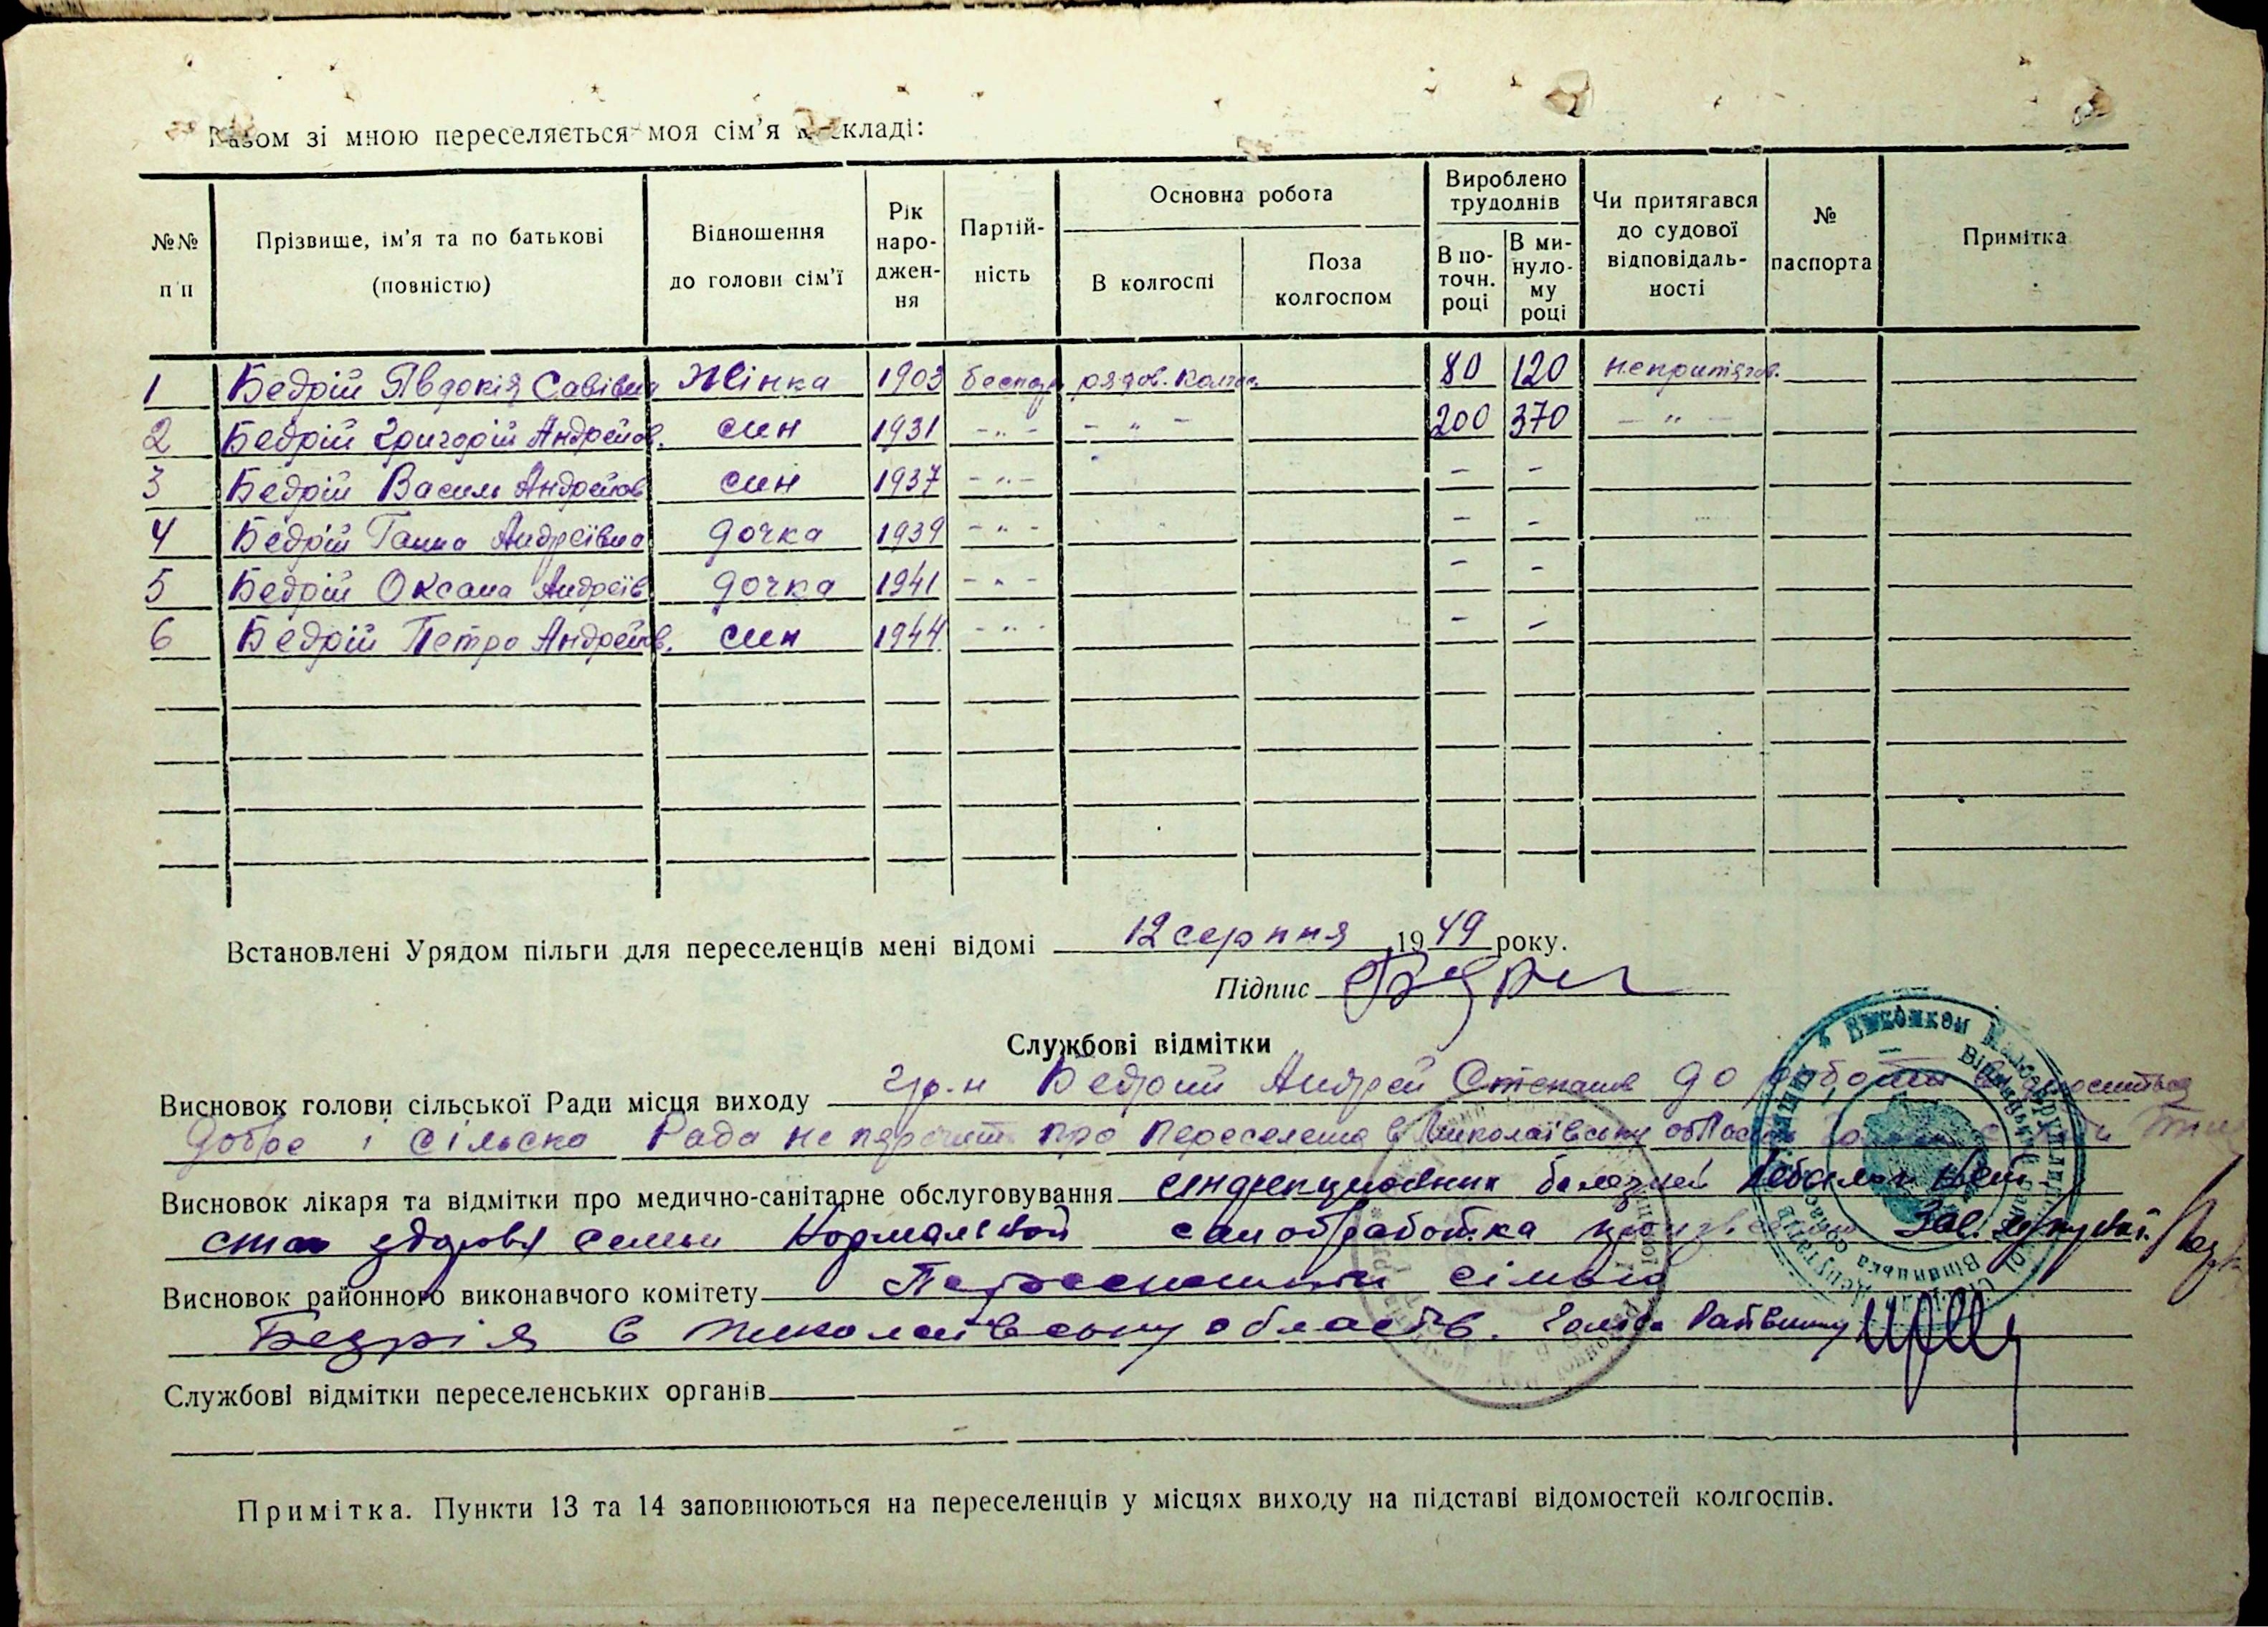 Разом зі мною переселяється моя сім'я в складі:
№№ п/п
Прізвище, ім'я та по батькові (повністю)
Відношення до голови сім'ї
Рік народження
Партійність
Основна робота
В колгоспі
Поза колгоспом
Вироблено трудоднів
В поточн. році
В минулому році
Чи притягався до судової відповідальності
№ паспорта
Примітка
1 Бедрій Явдокія Савівна жінка 1903 беспар рядов. колгос. 80 120 непритягов.
2 Бедрій Григорій Андрейов. син 1931 -"- -"- 200 370 -"-
3 Бедрій Василь Андрейов син 1937 -"- - -
4 Бедрій Ганна Андреївна дочка 1939 -"- - -
5 Бедрій Оксана Андреїв дочка 1941 -"- - -
6 Бедрій Петро Андрейов. син 1944 -"- - -
Встановлені Урядом пільги для переселенців мені відомі 12 серпня 1949 року.
Підпис
Службові відмітки
Висновок голови сільської Ради місця виходу гр-н Бедрий Андрей Степанов до роботи відноситься
добре і сільска Рада не перечит про переселення в Миколаївську область
Висновок лікаря та відмітки про медично-санітарне обслуговування инфекционних болезней
стан здоровя семьи нормальной санобработка Зав.
Висновок районного виконавчого комітету Переселити сімью
Бедрія в Миколаївську область. Голова Райвикон
Службові відмітки переселенських органів
Примітка. Пункти 13 та 14 заповнюються на переселенців у місцях виходу на підставі відомостей колгоспів.